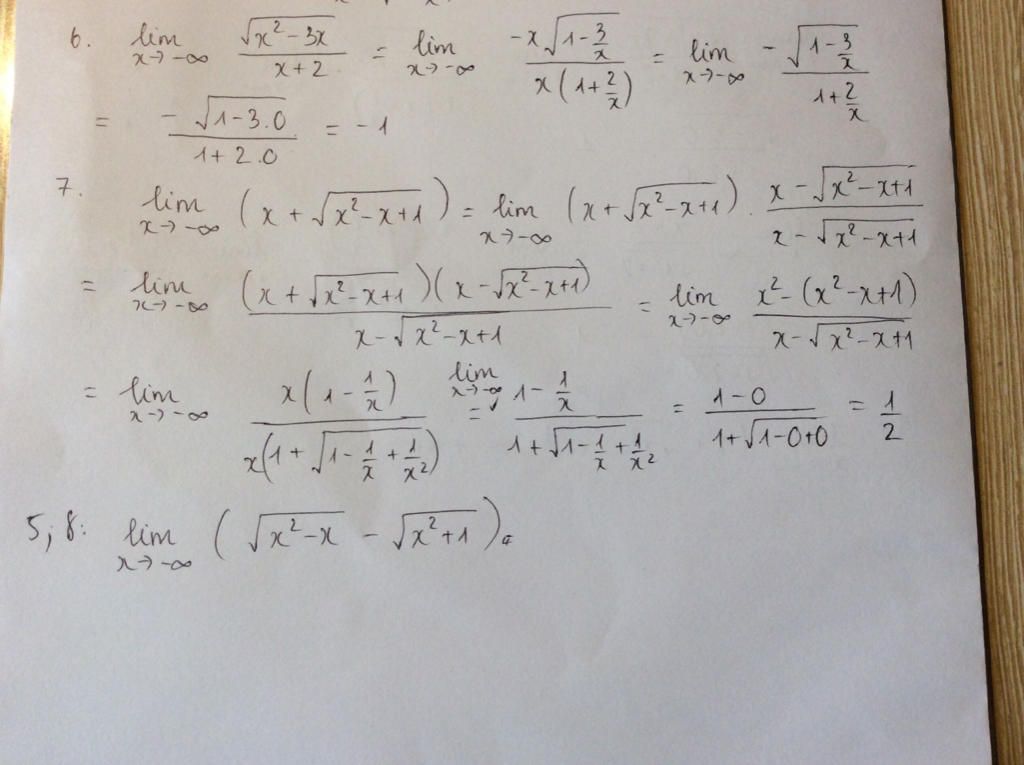 6. lim x→-∞ √(x²-3x) / (x+2) = lim x→-∞ -x√(1-3/x) / x(1+2/x) = lim x→-∞ -√(1-3/x) / (1+2/x)
= -√(1-3.0) / (1+2.0) = -1
7. lim x→-∞ (x+√(x²-x+1)) = lim x→-∞ (x+√(x²-x+1)) . (x-√(x²-x+1)) / (x-√(x²-x+1))
= lim x→-∞ (x+√(x²-x+1))(x-√(x²-x+1)) / (x-√(x²-x+1)) = lim x→-∞ (x²-(x²-x+1)) / (x-√(x²-x+1))
= lim x→-∞ x(1-1/x) / x(1+√(1-1/x+1/x²)) = lim x→-∞ (1-1/x) / (1+√(1-1/x+1/x²)) = (1-0) / (1+√(1-0+0)) = 1/2
5, 8: lim x→-∞ (√(x²-x) - √(x²+1))